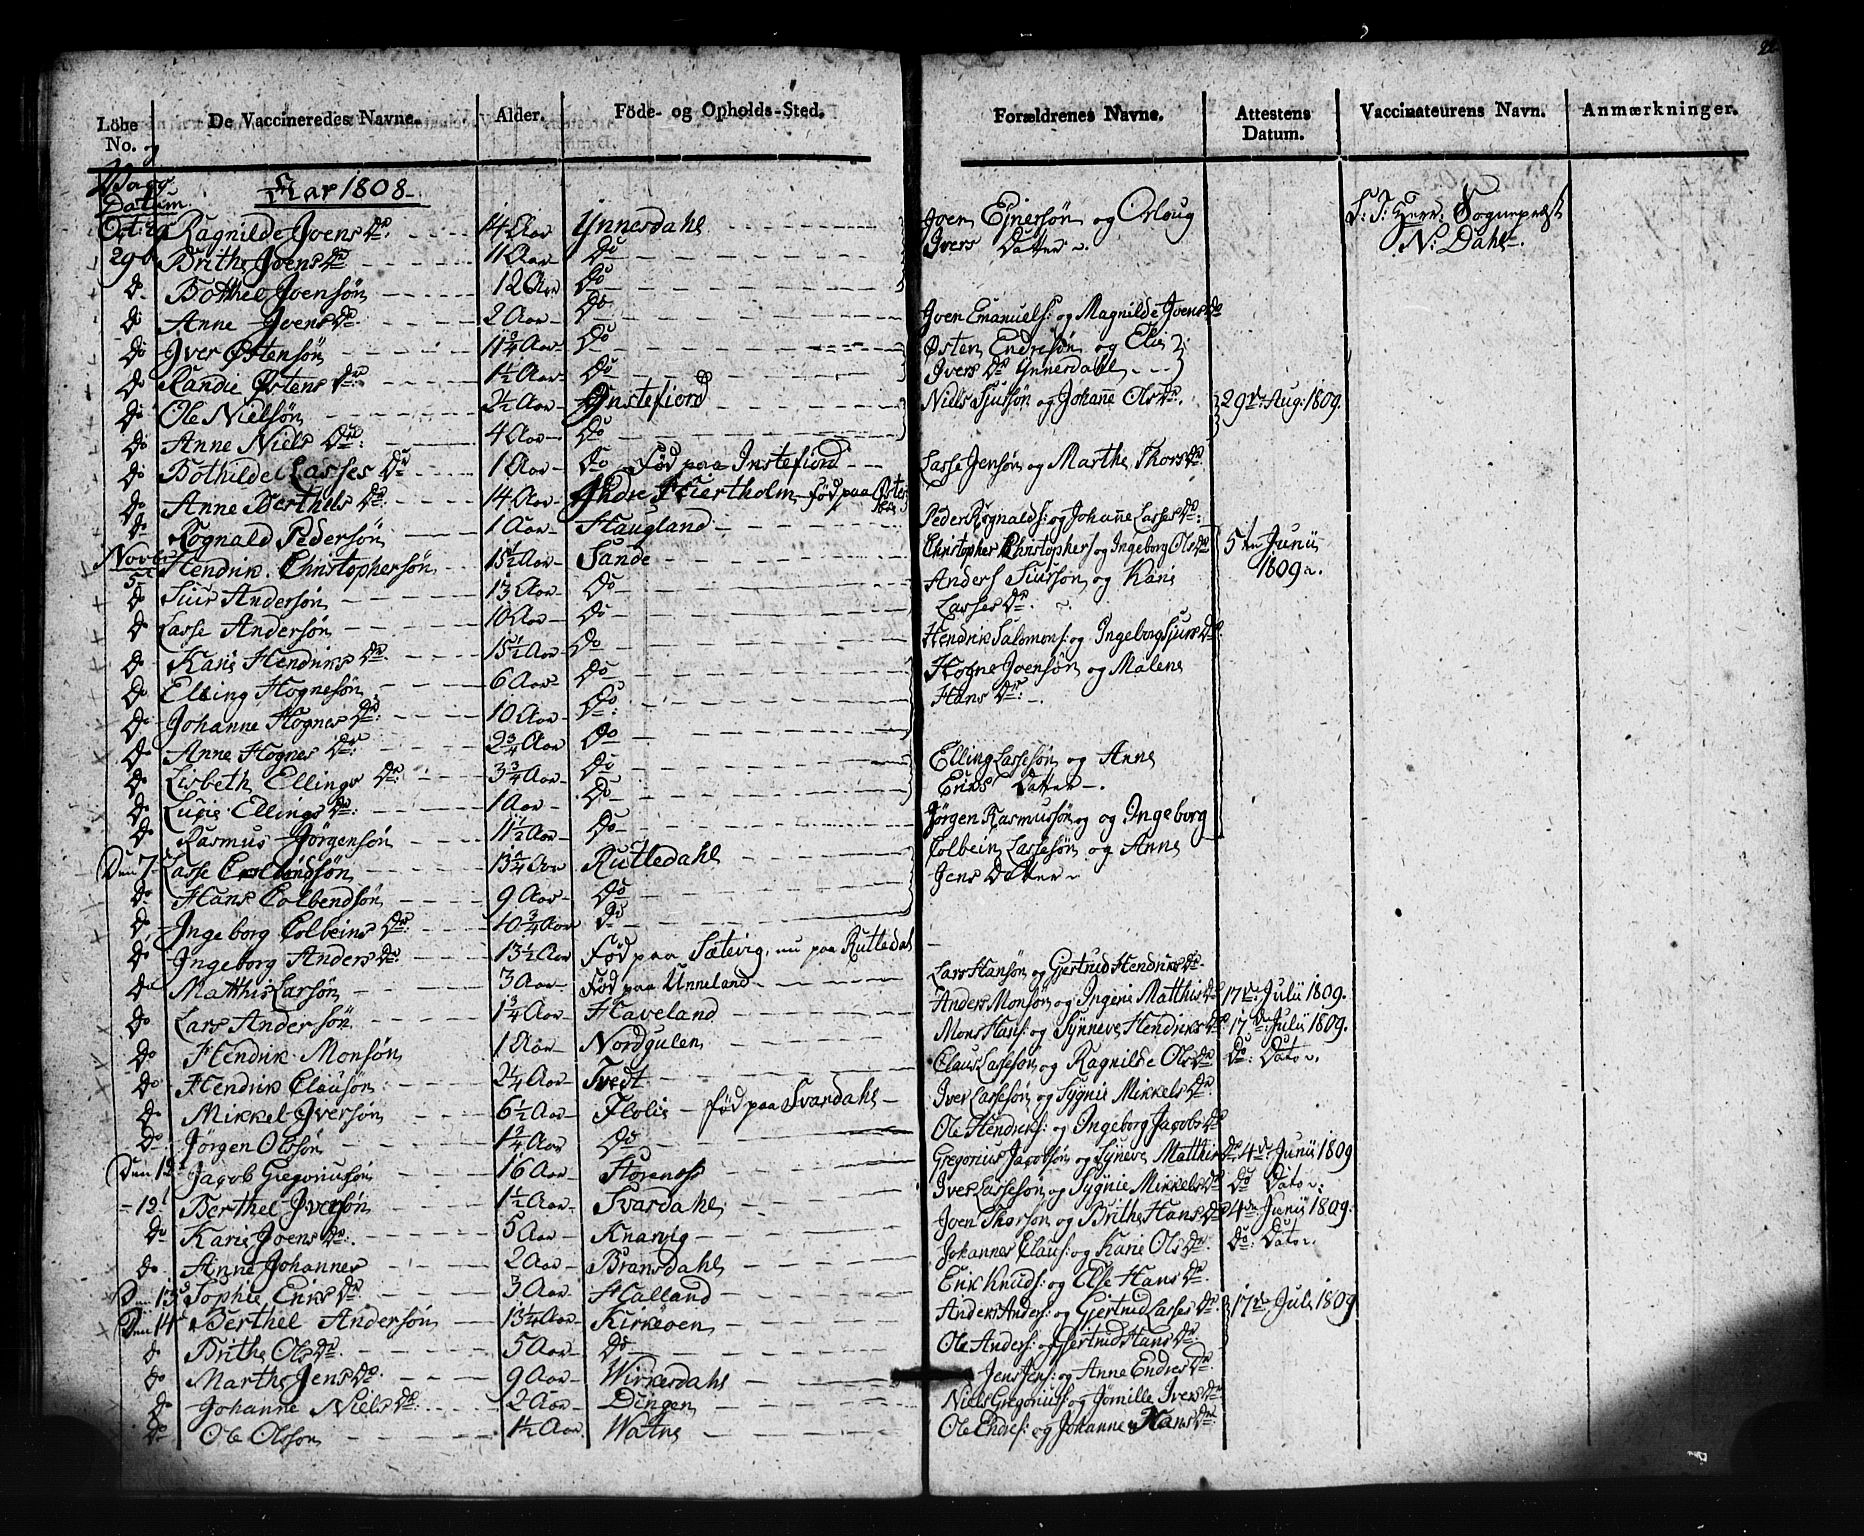 22
Löbe No. og Dags Datum. | De Vaccineredes Navne. | Alder. | Föde- og Opholds-Sted. | Forældrenes Navne. | Attestens Datum. | Vaccinateurens Navn. | Anmærkninger.
Aar 1808
Oct: 29 Ragnilde Joens Dr. 14 Aar Ynnesdahl
29 Brithe Joens Dr 11 Aar Do
do Botthel Joensön 12 Aar Do
do Anne Joens Dr 2 Aar Do
do Jver Östensön 11¾ Aar Do
do Randie Östens Dr 1½ Aar Do
do Ole Nielsön 2½ Aar Ynstefiord
do Anne Niels Dr: 4 Aar Do
do Bothilde Lasses Dr 1 Aar Do Fød paa Instefiord
do Anne Berthels Dr: 14 Aar Yhdre Hiertholm fød paa
do Rognald Pedersön 1 Aar Haugland
Novbr 5 Hendrik Christophersön 15½ Aar Sande
do Siur Andersön 13 Aar Do
do Lasse Andersön 10 Aar Do
do Karie Hendriks Dr 15½ Aar Do
do Elling Hognesön 6 Aar Do
do Johanne Hognes Dr: 10 Aar Do
do Anne Hognes Dr: 2¾ Aar Do
do Lisbeth Ellings Dr: 3¾ Aar Do
do Lucie Ellings Dr: 1 Aar Do
do Rasmus Jörgensön 11½ Aar Do
Den 7 Lasse 13¾ Aar Rutledahl
do Hans Colbendsön 9 Aar Do
do Ingeborg Colbeins Dr: 10¾ Aar Do
do Ingeborg Anders Dr: 13½ Aar Fød paa Sætevig, nu paa Rutledal
do Matthis Larsön 3 Aar Fød paa Unneland
do Lars Andersön 1¾ Aar Haveland
do Hendrik Monsön 1 Aar Nordgulen
do Hendrik Clausön 2¼ Aar Tvedt
do Mikkel Jversön 6½ Aar Flolie fød paa Svardahl
do Jörgen Olssön 1¾ Aar Do
Den 12 Jacob Gregoriusön 16 Aar Storenoss
12 Berthel Jversön 1½ Aar Svardahl
do Karie Joens Dr. 5 Aar Knarvig
do Anne Johannes 2 Aar Bransdahl
D. 13 Sophie Eriks Dr 3 Aar Halland
Den 14 Berthel Andersön 13¼ Aar Kirkeøen
do Brithe Ols Dr: 5 Aar Do
do Marthe Jens Dr. 9 Aar Wirkesdahl
do Johanne Niels Dr: 2 Aar Dingen
do Ole Olsson 1½ Aar Watne
Joen Ejnersön og Orloug
Jvers Datter
Joen Emanuels: og Magnilde Joens Dr
Østen Endresön og Elie
Jvers Dr Ynnesdahl
Niels Sjursön og Johanne Ols Dr. 29de Aug: 1809.
Lasse Jensön og Marthe Thors Dr
Peder Rognalds: og Johanne Lasses Dr:
Christopher Christophers: og Ingeborg Ols Dr 5te Junii
1809
Anders Siursön og Karie
Lasses Dr.
Hendrik Salomons: og Ingeborg Sjurs Dr
Hogne Joensön og Malene
Hans Dr:
Elling Lassesön og Anne
Eriks Datter
Jörgen Rasmussön og Ingeborg
Colbein Lassesön og Anne
Jens Datter
Lars Hansön og Gertrud Hendriks Dr.
Anders Monsön og Ingerie Matthis Dr 17de Julii 1809.
Mons Hans: og Synneve Hendriks Dr 17de Julii 1809.
Claus Lassesön og Ragnilde Ols Dr Do Dato
Jver Lassesön og Sygnie Mikkels Dr.
Ole Hendriks: og Ingeborg Jacobs Dr
Gregorius Jacobsön og Synneve Matthis Dr. 4de Junii 1809
Jver Lassesön og Sygnie Mikkels Dr Do Dato
Joen Thorsön og Brithe Hans Dr 4de Junii 1809.
Johannes Claus: og Karie Ols Dr. Do: Dato
Erik Knuds: og Else Hans Dr.
Anders Anders: og Gjertrud Lasses Dr 17de Juli 1809
Ole Anders: og Gjertrud Hans Dr.
Jens Jens: og Anne Endres Dr
Niels Gregorius: og Jömille Ivers Dr.
Ole Endres: og Johanne Hans Dr.
S: T: Herr Sognepræst
N: Dahl.